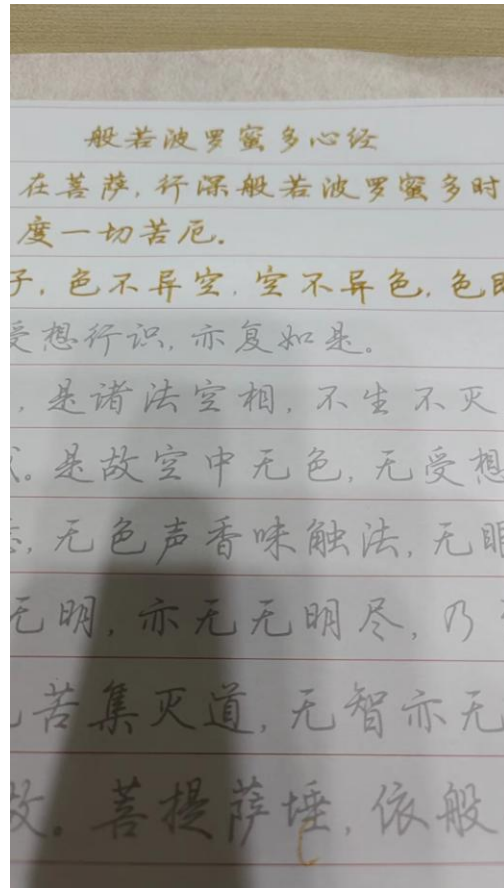 般若波罗蜜多心经
在菩萨,行深般若波罗蜜多时
度一切苦厄.
子,色不异空.空不异色,色即
受想行识,亦复如是。
,是诸法空相,不生不灭
。是故空中无色,无受想
,无色声香味触法,无眼
无明,亦无无明尽,乃
苦集灭道,无智亦无
故。菩提萨埵,依般